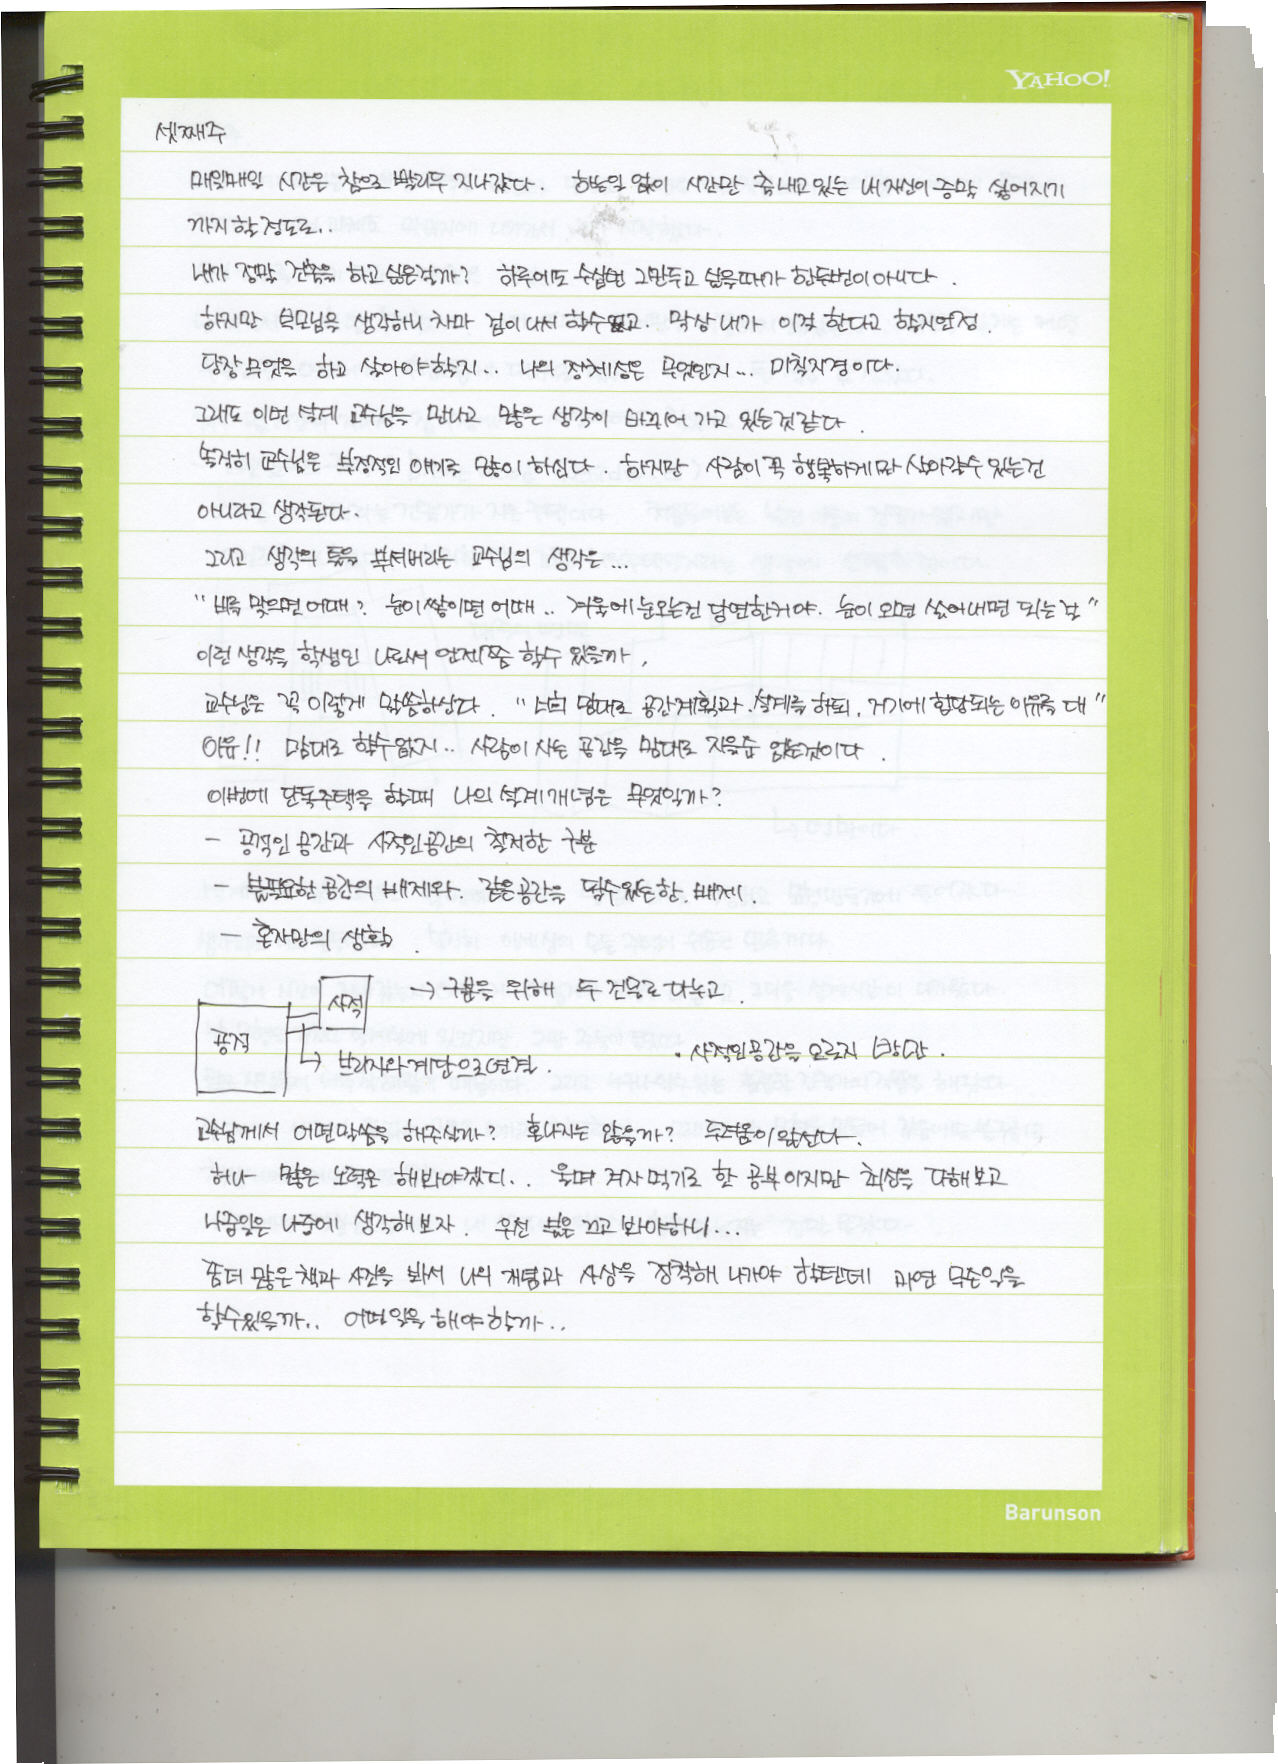 YAHOO!
셋째주
매일매일 시간은 참으로 빨리두 지나갔다. 하는일 없이 시간만 축내고있는 내 자신이 증말 싫어지기
까지 할 정도로..
내가 정말 건축을 하고싶은걸까? 하루에도 수십번 그만두고 싶을때가 한두번이아니다.
하지만 부모님을 생각하니 차마 겁이나서 할수없고. 막상 내가 이걸 한다고 할지언정.
당장 무엇을 하고 살아야할지.. 나의 정체성은 무엇인지... 미칠지경이다.
그래도 이번 설계 교수님을 만나고 많은 생각이 바뀌어 가고 있는것같다.
솔직히 교수님은 부정적인 얘기를 많이 하신다. 하지만 사람이 꼭 행복하게만 살아갈수 있는건
아니라고 생각된다.
그리고 생각의 틀을 부셔버리는 교수님의 생각은...
"비를 맞으면 어때? 눈이쌓이면 어때.. 겨울에 눈오는건 당연한거야. 눈이 오면 쓸어내면 되는걸"
이런 생각을 학생인 나로서 언제쯤 할수 있을까.
교수님은 꼭 이렇게 말씀하신다. "너희 맘대로 공간계획과 설계를 하되, 거기에 합당되는 이유를 대"
이유!! 맘대로 할수 없지.. 사람이 사는 공간을 맘대로 지을순 없는것이다.
이번에 단독주택을 할때 나의 설계개념은 무엇일까?
- 공적인 공간과 사적인공간의 철저한 구분
- 불필요한 공간의 배제와. 같은공간을 될수있는한. 배제.
- 혼자만의 생활.
사적 → 구분을 위해 두 건물로 나누고.
공적
→ 브리지와 계단으로연결.
· 사적인공간을 오로지 방만.
교수님께서 어떤말씀을 해주실까? 혼나지는 않을까? 두려움이 앞선다.
허나 많은 노력은 해봐야겠다.. 울며 겨자먹기로 한 공부이지만 최선을 다해보고
나중일은 나중에 생각해보자. 우선 불은 끄고 봐야하니...
좀더 많은 책과 사진을 봐서 나의 개념과 사상을 정착해 나가야 할텐데 과연 무슨일을
할수있을까.. 어떤일을 해야할까..
Barunson